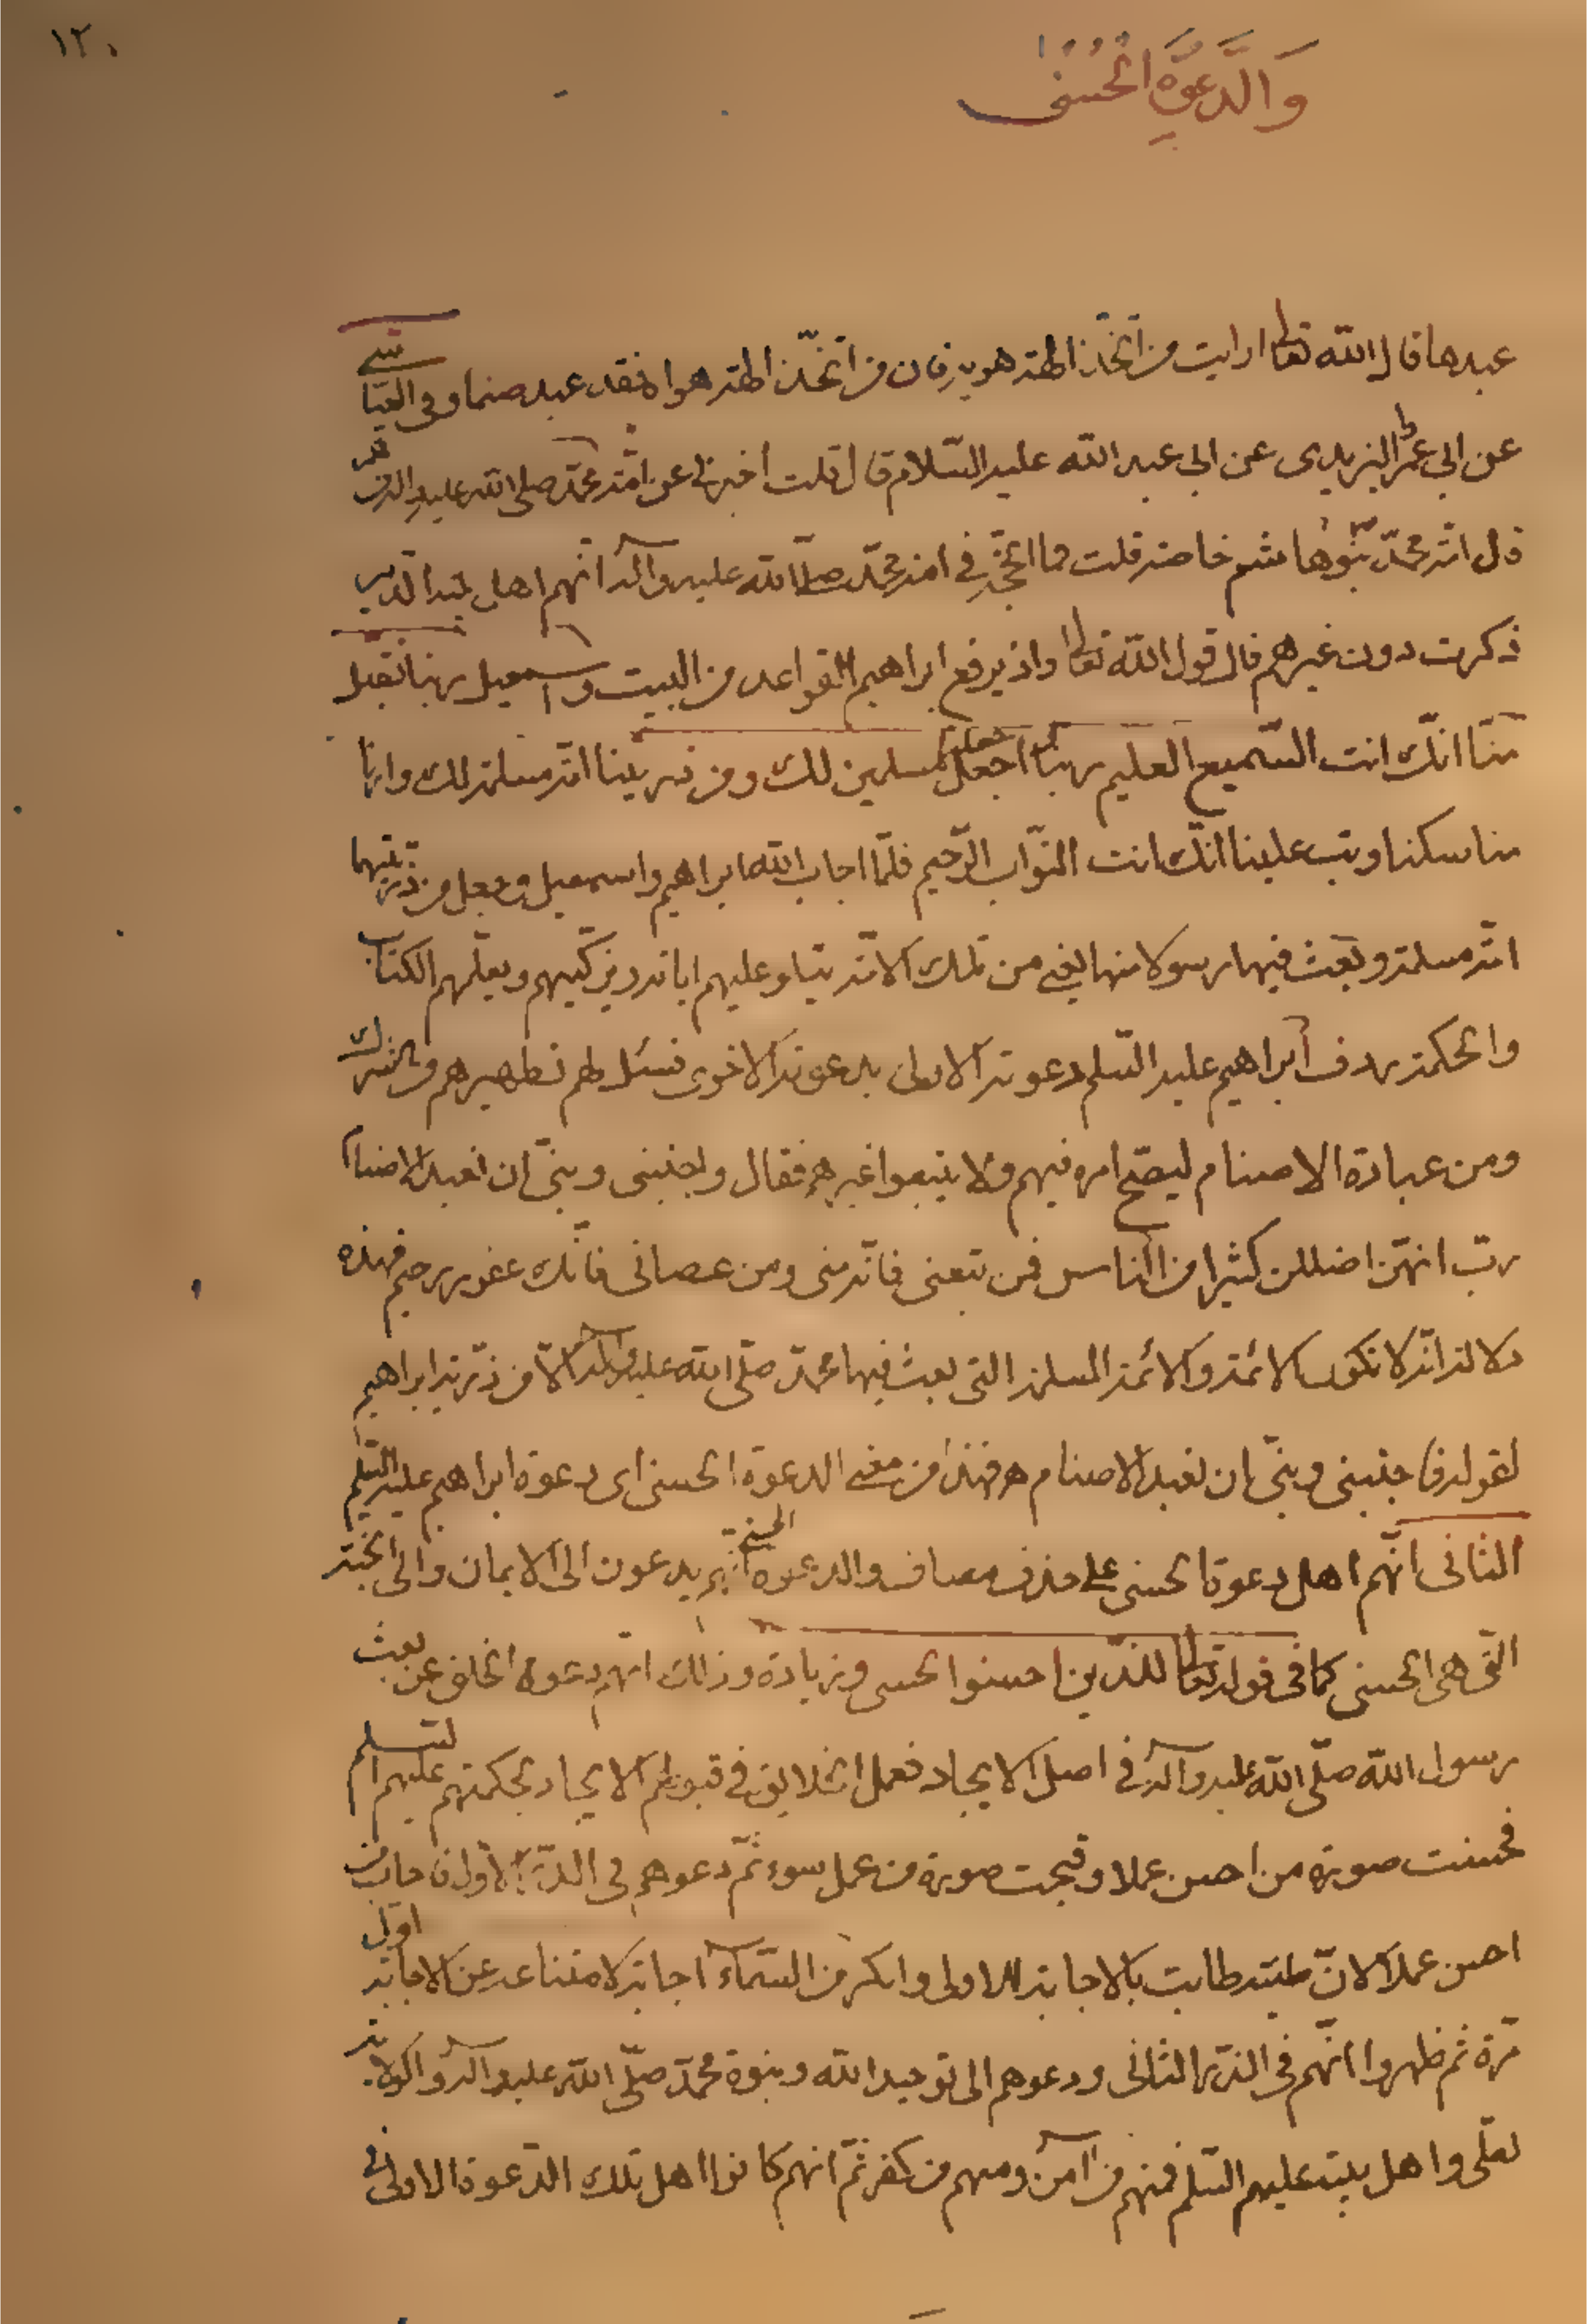 ١٢٠
وَالدَّعْوَةِ الْحُسْنى
عبدها قال الله تعالى ارايت من اتّخذ الهه هويه فان من اتّخذ الهه هواه فقد عبد صنما وفى العيّاشي
عن ابي عمر الزبيدى عن ابى عبد الله عليه السّلام قال قلت اخبرنى عن امّة محمّد صلى الله عليه واله من هم
قال امّة محمّد بنو هاشم خاصّة قلت فما الحجّة في امّة محمّد صلّى الله عليه وآله انّهم اهل بيته الذين
ذكرت دون غيرهم قال قول الله تعالى واذ يرفع ابراهيم القواعد من البيت واسمعيل ربنا تقبّل
منّا انّك انت السّميع العليم ربنا اجعلنا مسلمين لك ومن ذريتنا امّة مسلمة لك وارنا
مناسكنا وتب علينا انّك انت التوّاب الرّحيم فلمّا اجاب الله ابراهيم واسمعيل وجعل من ذرّيتهما
امّة مسلمة وبعث فيها رسولا منها يعنى من تلك الامّة يتلو عليهم اياته ويزكّيهم ويعلّمهم الكتاب
والحكمة ردف ابراهيم عليه السّلم دعوته الاولى بدعوته الاخرى فسئل لهم تطهيرهم من الشرك
ومن عبادة الاصنام ليصحّ امره فيهم ولا يتبعوا غيرهم فقال واجنبنى وبنىّ ان نعبد الاصنام
ربّ انهنّ اضللن كثيرا من النّاس فمن تبعنى فانّه منى ومن عصانى فانّك غفور رحيم فهذه
دلالة انّه لا تكون الائمّة والائمّة المسلمة التى بعث فيها محمّد صلّى الله عليه واله الّا من ذرّية ابراهيم
لقوله واجنبنى وبنىّ ان نعبد الاصنام هـ فهذا من معنى الدعوة الحسنى اى دعوة ابراهيم عليه السّلم
الثانى انّهم اهل دعوة الحسنى على حذف مضاف والدعوة الحسنى انّهم يدعون الى الايمان والى الجنّة
الّتى هى الحسنى كما فى قوله تعالى للّذين احسنوا الحسنى وزيادة وذلك انّهم دعوة الخلق عن بعث
رسول الله صلّى الله عليه وآله في اصل الايجاد فعمل الخلايق في قبولهم الايجاد بحكمتهم عليهم السّلم
فحسنت صورة من احسن عملا وقبحت صورة من عمل سوء ثمّ دعوهم فى الذّرّ الاول فاجاب من
احسن عملا لانّ طينته طابت بالاجابة الاولى وانكر من السّماء اجابة لامتناعه عن الاجابة اوّل
مرّة ثم ظهروا انّهم فى الذرّ الثانى ودعوهم الى توحيد الله وبنوة محمّد صلّى الله عليه وآله والولاية
لعلّى واهل بيته عليهم السّلم فمنهم من آمن ومنهم من كفر ثمّ انهم كانوا اهل تلك الدّعوة الاولى فى